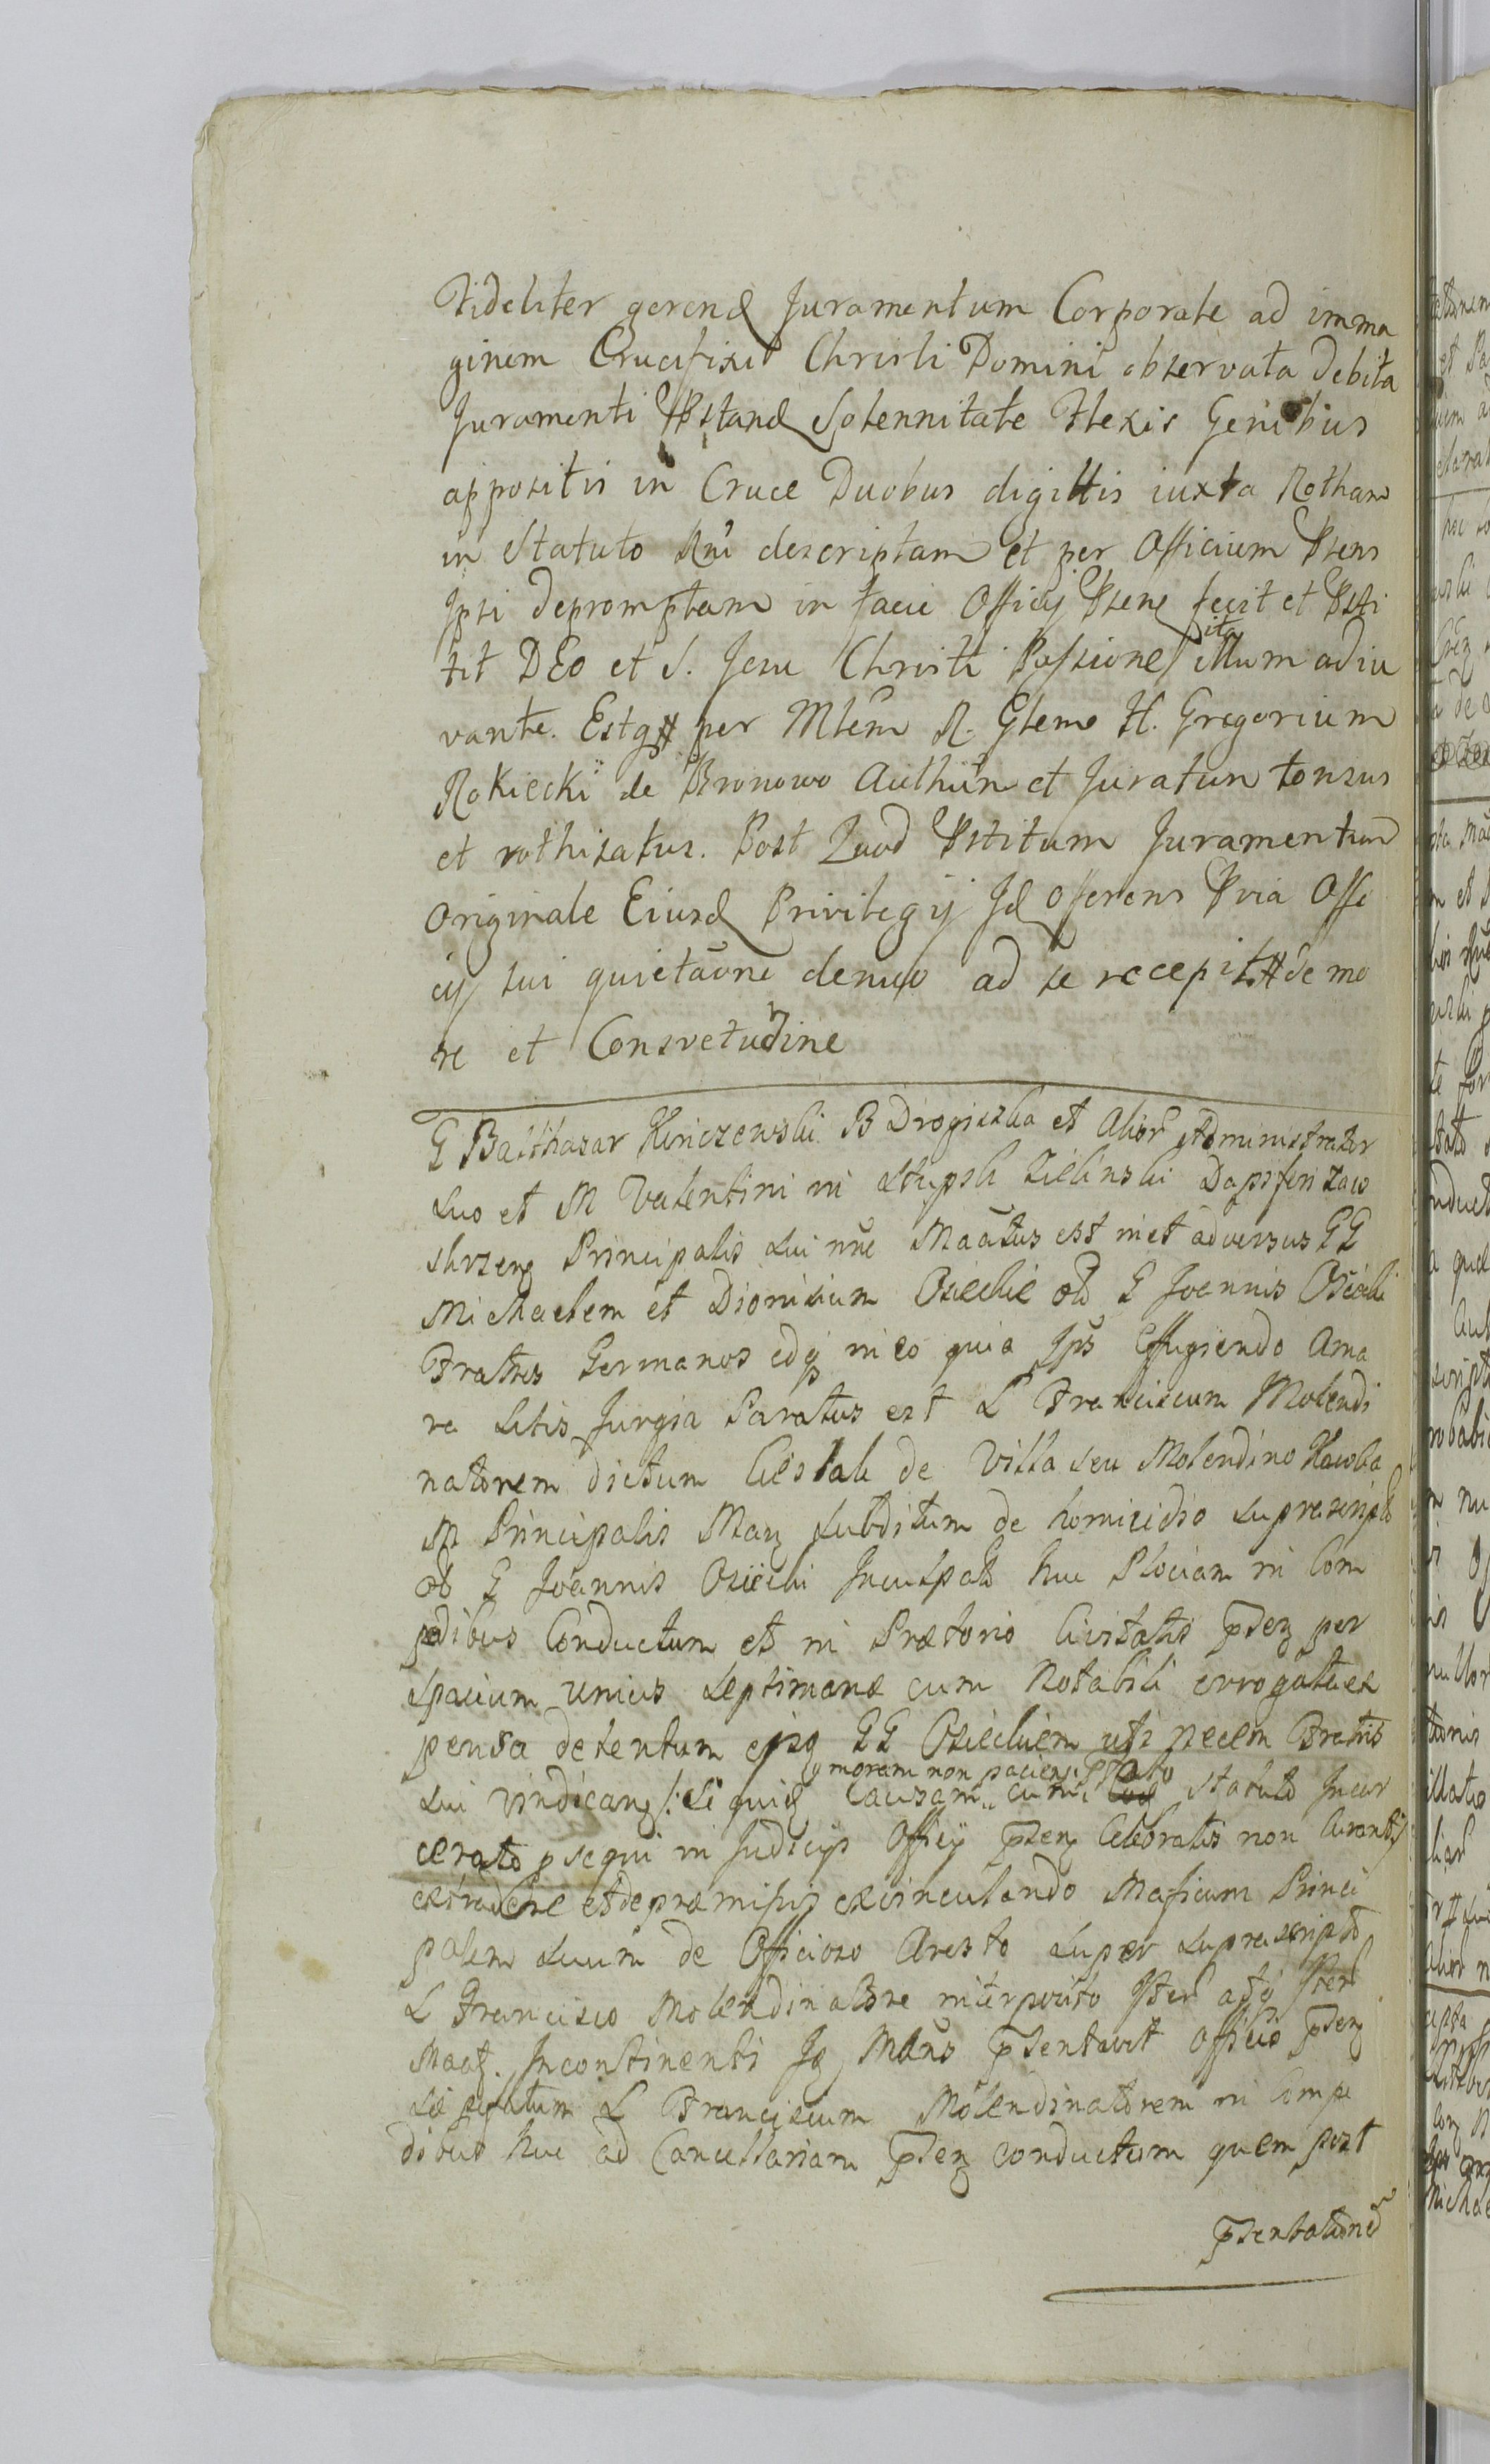 Fideliter gerend Juramentum Corporale ad imma
ginem Crucifixi Christi Domini observata debita
Juramenti Pstand Solennitate Flexis Genibus
appositis in Cruce Duobus digittis iuxta Rotham
in Statuto Rni descriptam et per Officium Psens
Ipsi depromptam in facie Officij Psens fecit et Psti
tit DEo et S. Jesu Christi Passione ita illum adiu
vante. Estq per Mlem R. Glemo H. Gregorium
Rokiecki de Bronowo Authūn et Juratum tonsus
et rothisatus. Post Quod Pstitum Juramentum
Originale Eiusd Privilegij Id offerens Pvia Offi
cij sui quietaōne denuo ad se recepit de mo
re et Consvetudine
G Balthasar Kinczewski B Drogiszka et Alior Administrator
Suo et M Valentini in Słupsk Zielinski Dapiferi Zaw
skrzen Principalis sui nne Maātus est in et adversus GG
Michaelem et Dionisium Osieckie olo G Joannis Osiecki
Fratres Germanos edq in eo quia Ips effugiendo Ama
ra Litis Jurgia Paratus est L Franciscum Molendi
natorem dictum de Villa seu Molendino
M Principalis Man subditum de homicidio suprascripto
olo G Joannis Osiecki Inculpato huc Plociam in Com
pedibus Conductum et in Prætorio Civitatis psen per
spacium unius septimanæ cum Notabili errogata ex
pensa detentum GG Osieckiem uti necem Fratris
sui vindican /: Si quid Causam cum Statuto Incar
moram non pacien
cerato psequi in Judicijs Officij psen Celebratis non Curanti
extradere et de præmissis exvinculando Mgficum Princi
palem suum de Officioso Aresto super suprascripto
L Francisco Molendinatore interposito Iter atq Iter
Maat. Incontinenti Id Mans psentavit Officio psen
L Franciscum Molendinatorem in Compe
dibus huc ad Cancellariam psen conductum quem post
psentationē